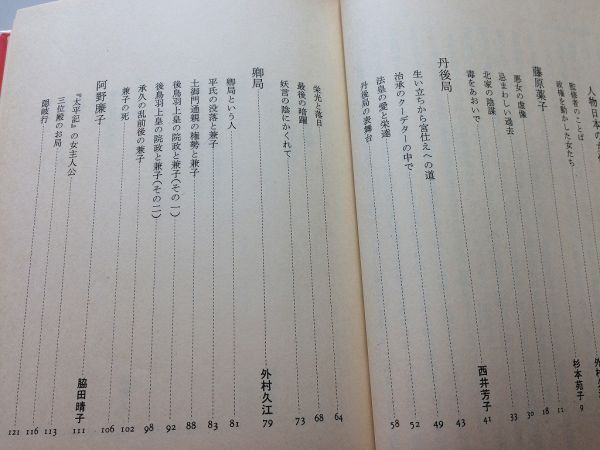 人物日本の女
監修者のことば
政権を動かした女たち
外村久
藤原薬子 杉本苑子 9
悪女の虚像 11
忌まわしい過去 18
北家の陰謀 30
毒をあおいで 33
丹後局 西井芳子 41
生い立ちから宮仕えへの道 43
治承のクーデターの中で 49
法皇の愛と栄達 52
丹後局の表舞台 58
栄光と落日 64
最後の暗躍 68
妖言の陰にかくれて 73
卿局 外村久江 79
卿局という人 81
平氏の没落と兼子 83
土御門通親の権勢と兼子 88
後鳥羽上皇の院政と兼子(その一) 92
後鳥羽上皇の院政と兼子(その二) 98
承久の乱前後の兼子 102
兼子の死 106
阿野廉子 脇田晴子 111
『太平記』の女主人公 113
三位殿のお局 116
隠岐行 121